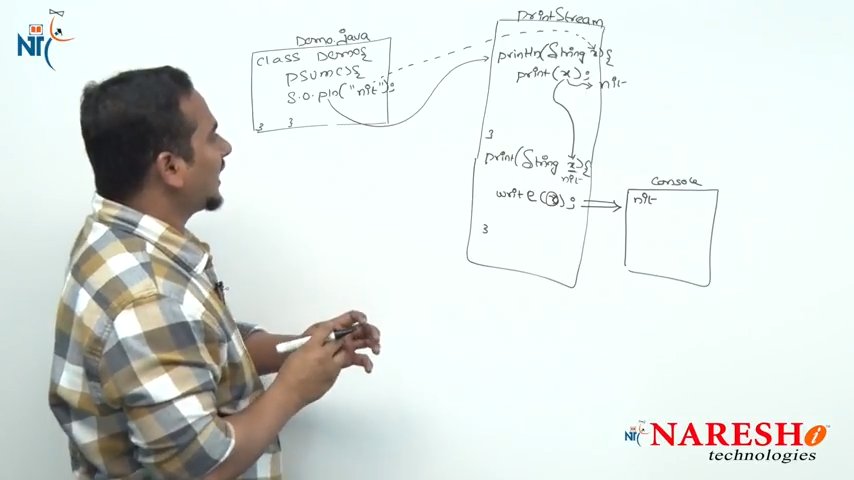 NTC
Demo.java
class Demo{
psvmc){
S.o.pln("nit");
}
}
PrintStream
println(String x){
print(x);
nit
}
print(String x){
nit
write(x);
}
Console
nit
NIT
NARESH i
technologies